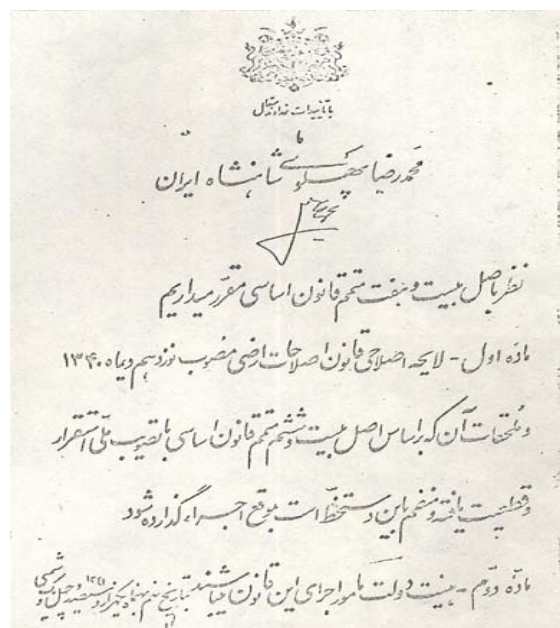 با تأییدات خداوند متعال
ما
محمد رضا پهلوی شاهنشاه ایران
نظر باصل بیست و هفت متمم قانون اساسی مقرر میداریم
ماده اول - لایحه اصلاحی قانون اصلاحات ارضی مصوب نوزدهم دیماه ۱۳۴۰
و ملحقات آن که بر اساس اصل بیست و ششم متمم قانون اساسی با تصویب ملی استقرار
و قطعیت یافته و منضم باین دستخط است بموقع اجراء گذارده شود
ماده دوم - هیئت دولت مأمور اجرای این قانون میباشند بتاریخ بهمن ماه یکهزار و سیصد و چهل و یک شمسی
۱۳۴۱